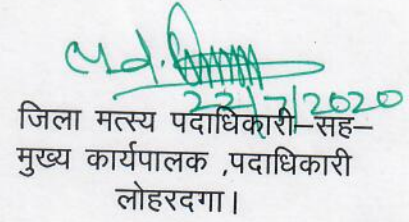 22/7/2020
जिला मत्स्य पदाधिकारी–सह–
मुख्य कार्यपालक ,पदाधिकारी
लोहरदगा।